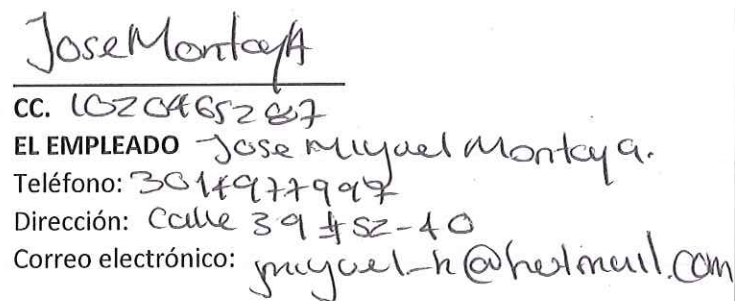 Jose Montoya
CC. 1020465287
EL EMPLEADO Jose Miguel Montoya.
Teléfono: 3014977997
Dirección: Calle 39 #52-40
Correo electrónico: jmiguel-h@hotmail.com